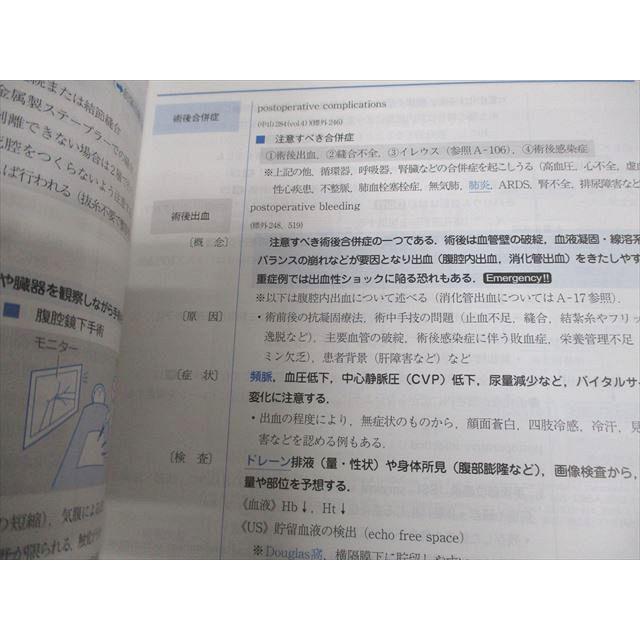 または結節縫合
金属製ステープラーでの
剥離できない場合は2個
死腔をつくらないよう注意す
ば行われる（抜糸不要で
や臓器を観察しながら手
■ 腹腔鏡下手術
モニター
の短縮），気腹による
野が限られる，触
術後合併症
postoperative complications
(中山284(vol.4))(標外246)
■ 注意すべき合併症
①術後出血，②縫合不全，③イレウス（参照A-106），④術後感染症
※上記の他，循環器，呼吸器，腎臓などの合併症を起こしうる（高血圧，心不全，虚
性心疾患，不整脈，肺血栓塞栓症，無気肺，肺炎，ARDS，腎不全，排尿障害など
術後出血
postoperative bleeding
(標外248, 519)
〔概 念〕
注意すべき術後合併症の一つである．術後は血管壁の破綻，血液凝固・線溶系
バランスの崩れなどが要因となり出血（腹腔内出血，消化管出血）をきたしやす
重症例では出血性ショックに陥る恐れもある．Emergency!!
※以下は腹腔内出血について述べる（消化管出血についてはA-17参照）．
〔原 因〕
・術前後の抗凝固療法，術中手技の問題（止血不足，縫合，結紮糸やフリッ
逸脱など），主要血管の破綻，術後感染症に伴う敗血症，栄養管理不足
ミン欠乏），患者背景（肝障害など）など
〔症 状〕
頻脈，血圧低下，中心静脈圧（CVP）低下，尿量減少など，バイタルサ
変化に注意する．
・出血の程度により，無症状のものから，顔面蒼白，四肢冷感，冷汗，見
害などを認める例もある．
〔検 査〕
ドレーン排液（量・性状）や身体所見（腹部膨隆など），画像検査から，
量や部位を予想する．
《血液》Hb↓，Ht↓
《US》貯留血液の検出（echo free space）
※Douglas窩，横隔膜下に貯留しやすい